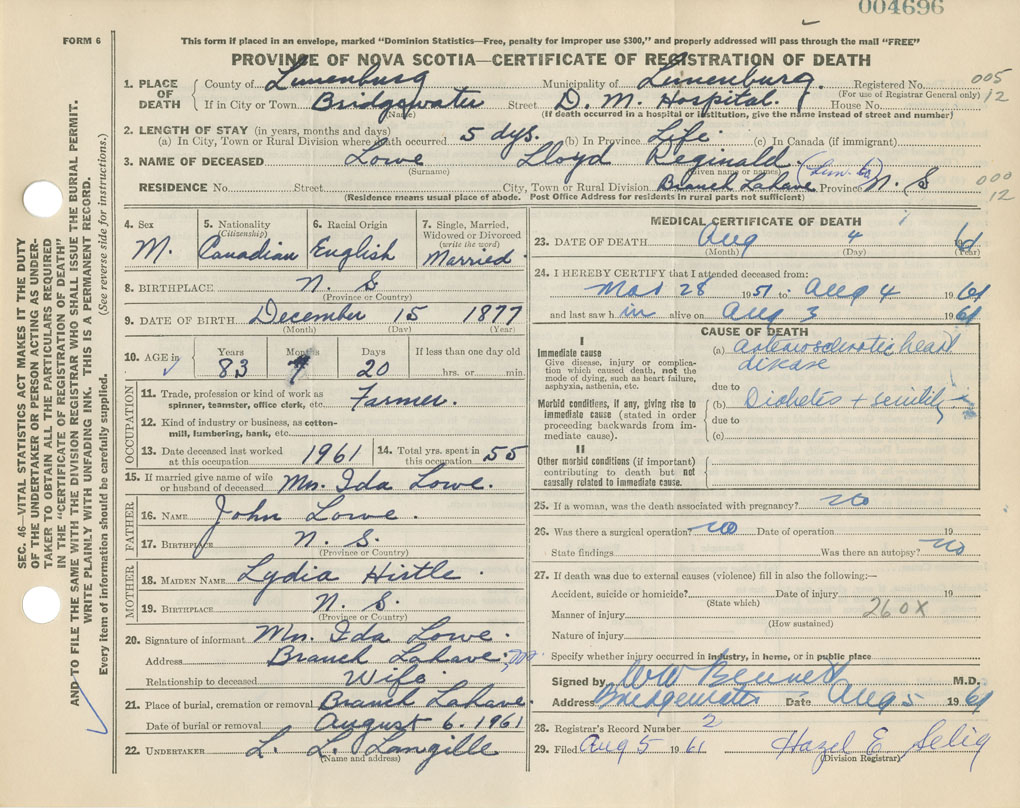 004696
FORM 6
This form if placed in an envelope, marked "Dominion Statistics—Free, penalty for improper use $300," and properly addressed will pass through the mail "FREE"
PROVINCE OF NOVA SCOTIA—CERTIFICATE OF REGISTRATION OF DEATH
1. PLACE OF DEATH
County of Lunenburg Municipality of Lunenburg. Registered No. 005
(For use of Registrar General only) 12
If in City or Town Bridgewater Street D. M. Hospital. House No.
(Name) (If death occurred in a hospital or institution, give the name instead of street and number)
2. LENGTH OF STAY (in years, months and days)
(a) In City, Town or Rural Division where death occurred 5 dys. (b) In Province Life (c) In Canada (if immigrant)
3. NAME OF DECEASED Lowe Lloyd Reginald.
(Surname) (Given name or names) (Lun. Co)
RESIDENCE No. Street City, Town or Rural Division Branch Lahave Province N. S 000
12
(Residence means usual place of abode. Post Office Address for residents in rural parts not sufficient)
4. Sex
M.
5. Nationality
(Citizenship)
Canadian
6. Racial Origin
English
7. Single, Married, Widowed or Divorced
(write the word)
Married.
8. BIRTHPLACE N. S
(Province or Country)
9. DATE OF BIRTH December 15 1877
(Month) (Day) (Year)
10. AGE in
Years
83
Months
7
Days
20
If less than one day old
hrs. or min.
OCCUPATION
11. Trade, profession or kind of work as
spinner, teamster, office clerk, etc. Farmer.
12. Kind of industry or business, as cotton-
mill, lumbering, bank, etc.
13. Date deceased last worked
at this occupation 1961
14. Total yrs. spent in
this occupation 55
15. If married give name of wife
or husband of deceased Mrs. Ida Lowe.
FATHER
16. NAME John Lowe.
17. BIRTHPLACE N. S.
(Province or Country)
MOTHER
18. MAIDEN NAME Lydia Hirtle.
19. BIRTHPLACE N. S.
(Province or Country)
20. Signature of informant Mrs. Ida Lowe.
Address Branch Lahave.
Relationship to deceased Wife.
21. Place of burial, cremation or removal Branch Lahave.
Date of burial or removal August 6. 1961
22. UNDERTAKER L. L. Langille
(Name and address)
MEDICAL CERTIFICATE OF DEATH
23. DATE OF DEATH Aug 4 61
(Month) (Day) (Year)
24. I HEREBY CERTIFY that I attended deceased from:
Mar 28 1951 to Aug 4 1961
and last saw h im alive on Aug 3 1961
CAUSE OF DEATH
I
Immediate cause
Give disease, injury or complica-
tion which caused death, not the
mode of dying, such as heart failure,
asphyxia, asthenia, etc.
(a) arteriosclerotic heart
disease
due to
Morbid conditions, if any, giving rise to
immediate cause (stated in order
proceeding backwards from im-
mediate cause).
(b) Diabetes + senility
due to
(c)
II
Other morbid conditions (if important)
contributing to death but not
causally related to immediate cause.
25. If a woman, was the death associated with pregnancy? no
26. Was there a surgical operation? no Date of operation 19
State findings Was there an autopsy? no
27. If death was due to external causes (violence) fill in also the following:—
Accident, suicide or homicide? Date of injury 19
(State which)
Manner of injury 260X
(How sustained)
Nature of injury
Specify whether injury occurred in industry, in home, or in public place
Signed by WW Bennett M.D.
Address Bridgewater Date Aug 5 1961
28. Registrar's Record Number 2
29. Filed Aug 5 1961 Hazel E. Selig
(Division Registrar)
SEC. 46—VITAL STATISTICS ACT MAKES IT THE DUTY
OF THE UNDERTAKER OR PERSON ACTING AS UNDER-
TAKER TO OBTAIN ALL THE PARTICULARS REQUIRED
IN THE "CERTIFICATE OF REGISTRATION OF DEATH"
AND TO FILE THE SAME WITH THE DIVISION REGISTRAR WHO SHALL ISSUE THE BURIAL PERMIT.
WRITE PLAINLY WITH UNFADING INK. THIS IS A PERMANENT RECORD.
Every item of information should be carefully supplied. (See reverse side for instructions.)